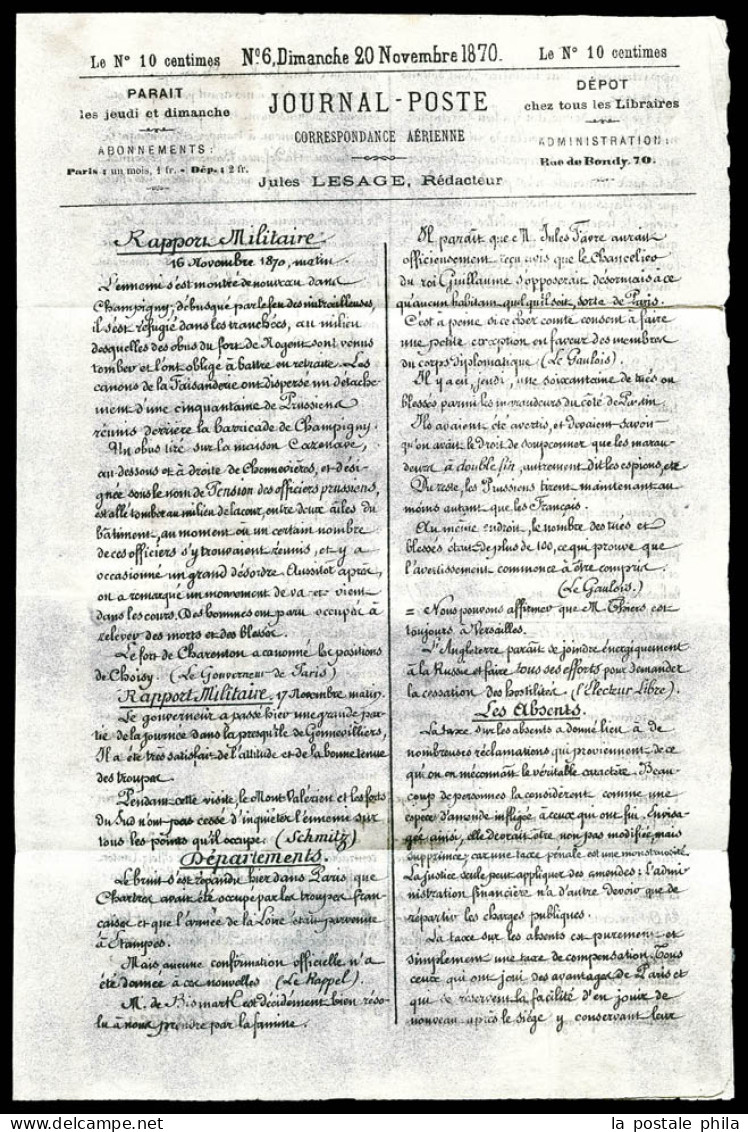 Le Nº 10 centimes Nº 6, Dimanche 20 Novembre 1870. Le Nº 10 centimes
PARAIT
les jeudi et dimanche
ABONNEMENTS :
Paris : un mois, 1 fr. - Dép. : 2 fr.
JOURNAL-POSTE
CORRESPONDANCE AÉRIENNE
Jules LESAGE, Rédacteur
DÉPOT
chez tous les Libraires
ADMINISTRATION :
Rue de Bondy. 70.
Rapport Militaire
16 Novembre 1870, matin.
L'ennemi s'est montré de nouveau dans
Champigny; débusqué par le feu des mitrailleuses,
il s'est réfugié dans les tranchées, au milieu
desquelles des obus du fort de Nogent sont venus
tomber et l'ont obligé à battre en retraite. Les
canons de la Faisanderie ont dispersé un détache
ment d'une cinquantaine de Prussiens
réunis derrière la barricade de Champigny.
Un obus tiré sur la maison Cazenave,
au-dessous et à droite de Chennevières, et dési-
gnée sous le nom de Pension des officiers prussiens,
est allé tomber au milieu de la cour, entre deux ailes du
bâtiment, au moment où un certain nombre
de ces officiers s'y trouvaient réunis, et y a
occasionné un grand désordre. Aussitôt après,
on a remarqué un mouvement de va-et-vient
dans les cours. Des hommes ont paru occupés à
relever des morts et des blessés.
Le fort de Charenton a canonné les positions
de Choisy. (Le Gouverneur de Paris)
Rapport Militaire, 17 Novembre matin.
Le gouverneur a passé hier une grande par-
tie de la journée dans la presqu'île de Gennevilliers,
Il a été très satisfait de l'attitude et de la bonne tenue
des troupes.
Pendant cette visite, le Mont-Valérien et les forts
du Sud n'ont pas cessé d'inquiéter l'ennemi sur
tous les points qu'il occupe. (Schmitz)
Départements.
Le bruit s'est répandu hier dans Paris que
Chartres avait été occupé par les troupes fran-
çaises et que l'armée de la Loire était parvenue
à Étampes.
Mais aucune confirmation officielle n'a
été donnée à ces nouvelles (Le Rappel).
M. de Bismark est décidément bien réso-
lu à nous prendre par la famine.
Il paraît que M. Jules Favre aurait
officieusement reçu avis que le Chancelier
du roi Guillaume s'opposerait désormais à ce
qu'aucun habitant, quel qu'il soit, sorte de Paris.
C'est à peine si ce cher comte consent à faire
une petite exception en faveur des membres
du corps diplomatique (Le Gaulois).
Il y a eu, jeudi, une soixantaine de tués ou
blessés parmi les maraudeurs du côté de Pantin.
Ils avaient été avertis, et devaient savoir
qu'on avait le droit de soupçonner que les marau-
deurs à double fin, autrement dit les espions, etc
Du reste, les Prussiens tirent maintenant au
moins autant que les Français.
Au même endroit, le nombre des tués et
blessés était de plus de 100, ce qui prouve que
l'avertissement commence à être compris.
(Le Gaulois.)
= Nous pouvons affirmer que M. Thiers est
toujours à Versailles.
L'Angleterre paraît se joindre énergiquement
à la Russie et faire tous ses efforts pour demander
la cessation des hostilités (l'Électeur Libre).
Les Absents.
La taxe sur les absents a donné lieu à de
nombreuses réclamations qui proviennent de ce
qu'on en méconnaît le véritable caractère. Beau-
coup de personnes la considèrent comme une
espèce d'amende infligée à ceux qui ont fui. Envisa-
gée ainsi, elle devrait être non pas modifiée, mais
supprimée; car une taxe pénale est une monstruosité.
La justice seule peut appliquer des amendes: l'admi-
nistration financière n'a d'autre devoir que de
répartir les charges publiques.
La taxe sur les absents est purement et
simplement une taxe de compensation. Tous
ceux qui ont joui des avantages de Paris et
qui se réservent la facilité d'en jouir de
nouveau après le siège y conservant leur
la postale phila